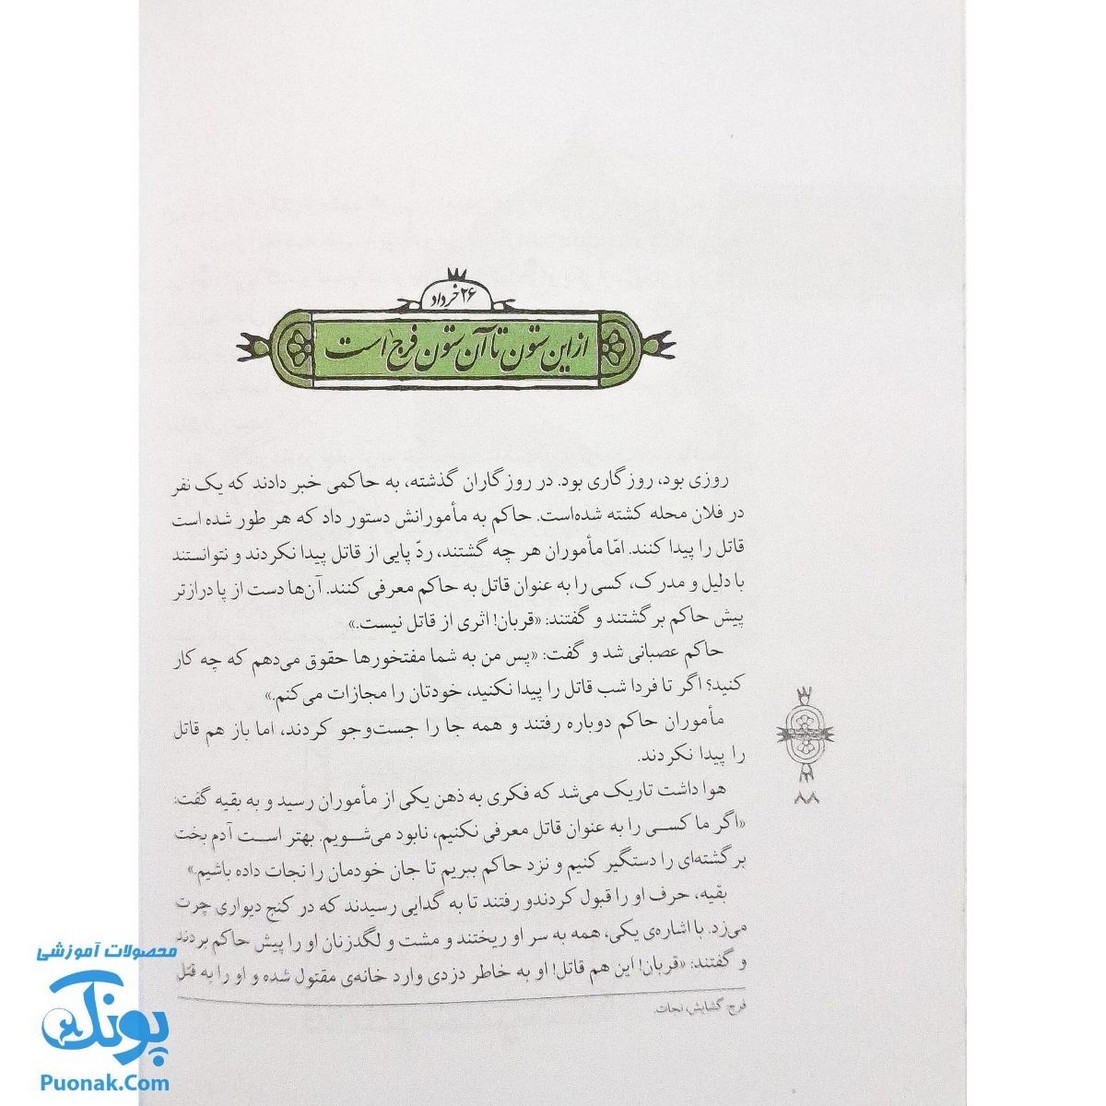 ۲۶ خرداد
از این ستون تا آن ستون فرج است
روزی بود، روزگاری بود. در روزگاران گذشته، به حاکمی خبر دادند که یک نفر
در فلان محله کشته شده‌است. حاکم به مأمورانش دستور داد که هر طور شده است
قاتل را پیدا کنند. امّا مأموران هر چه گشتند، ردّ پایی از قاتل پیدا نکردند و نتوانستند
با دلیل و مدرک، کسی را به عنوان قاتل به حاکم معرفی کنند. آن‌ها دست از پا درازتر
پیش حاکم برگشتند و گفتند: «قربان! اثری از قاتل نیست.»
حاکم عصبانی شد و گفت: «پس من به شما مفتخورها حقوق می‌دهم که چه کار
کنید؟ اگر تا فردا شب قاتل را پیدا نکنید، خودتان را مجازات می‌کنم.»
مأموران حاکم دوباره رفتند و همه جا را جست‌وجو کردند، اما باز هم قاتل
را پیدا نکردند.
هوا داشت تاریک می‌شد که فکری به ذهن یکی از مأموران رسید و به بقیه گفت:
«اگر ما کسی را به عنوان قاتل معرفی نکنیم، نابود می‌شویم. بهتر است آدم بخت
برگشته‌ای را دستگیر کنیم و نزد حاکم ببریم تا جان خودمان را نجات داده باشیم.»
بقیه، حرف او را قبول کردندو رفتند تا به گدایی رسیدند که در کنج دیواری چرت
می‌زد. با اشاره‌ی یکی، همه به سر او ریختند و مشت و لگدزنان او را پیش حاکم بردند
و گفتند: «قربان! این هم قاتل! او به خاطر دزدی وارد خانه‌ی مقتول شده و او را به قتل
فرج: گشایش، نجات.
۸۸
محصولات آموزشی
پونک
Puonak.Com